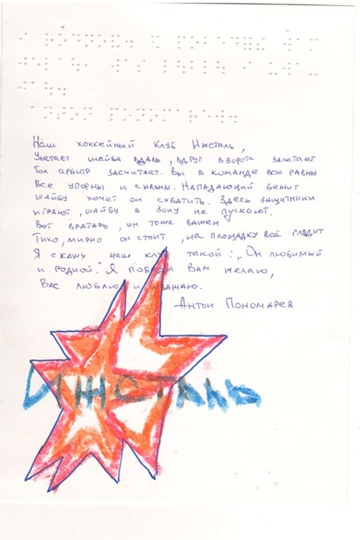 Наш хоккейный клуб Ижсталь,
Улетает шайба вдаль, вдруг в ворота залетает
Гол арбитр засчитает. Вы в команде все равны
Все упорны и сильны. Нападающий бежит
шайбу хочет он схватить. Здесь защитники
играют, шайбу в зону не пускают.
Вот вратарь, он тоже важен
Тихо, мирно он стоит, на площадку всё глядит
Я скажу наш клуб такой: „Он любимый
и родной." Я победы Вам желаю,
Вас люблю и уважаю.
Антон Пономарев
Ижсталь